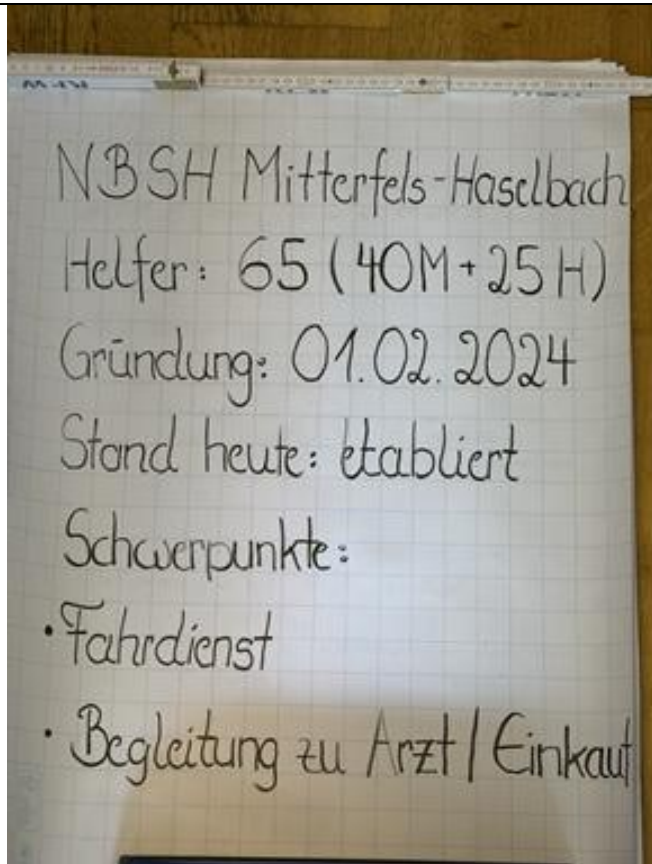 NBSH Mitterfels-Haselbach
Helfer: 65 (40M+25H)
Gründung: 01.02.2024
Stand heute: etabliert
Schwerpunkte:
• Fahrdienst
• Begleitung zu Arzt / Einkauf